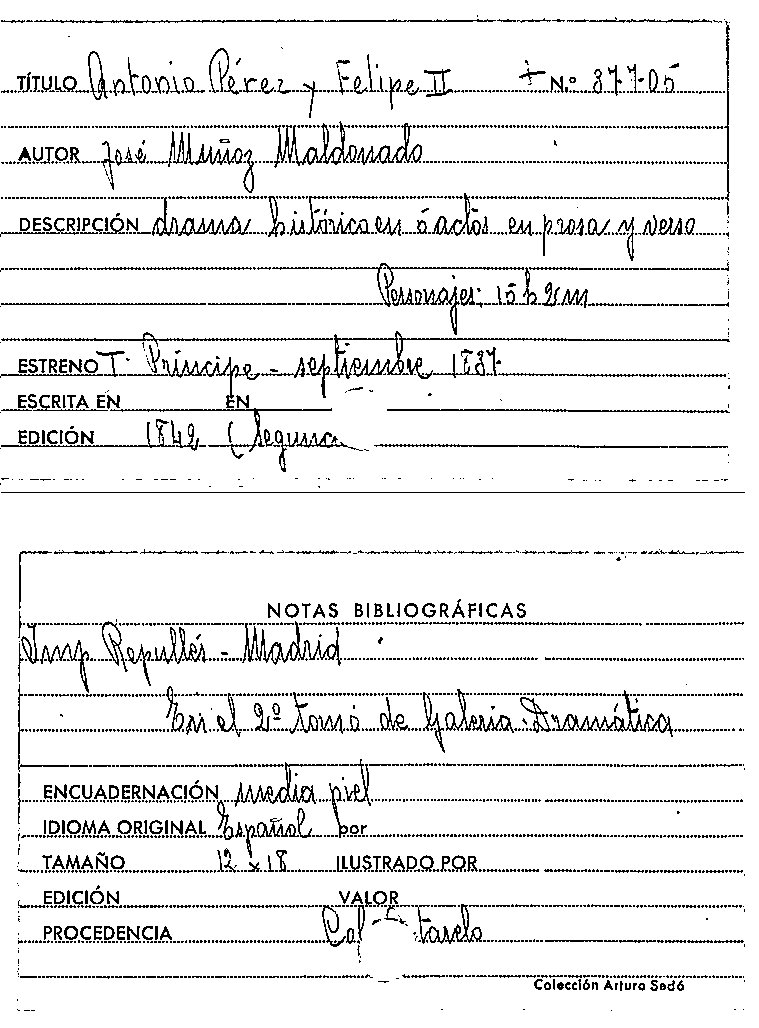 TÍTULO Antonio Pérez y Felipe II + N.º 377-05
AUTOR José Muñoz Maldonado
DESCRIPCIÓN drama histórico en 5 actos en prosa y verso
Personajes: 15 h 2 m
ESTRENO T. Príncipe - septiembre 1837-
ESCRITA EN EN
EDICIÓN 1842 (Segunda
NOTAS BIBLIOGRÁFICAS
Imp Repullés - Madrid
En el 2º tomo de Galeria Dramática
ENCUADERNACIÓN media piel
IDIOMA ORIGINAL Español por
TAMAÑO 12 x 18 ILUSTRADO POR
EDICIÓN VALOR
PROCEDENCIA Col tarelo
Colección Arturo Sedó